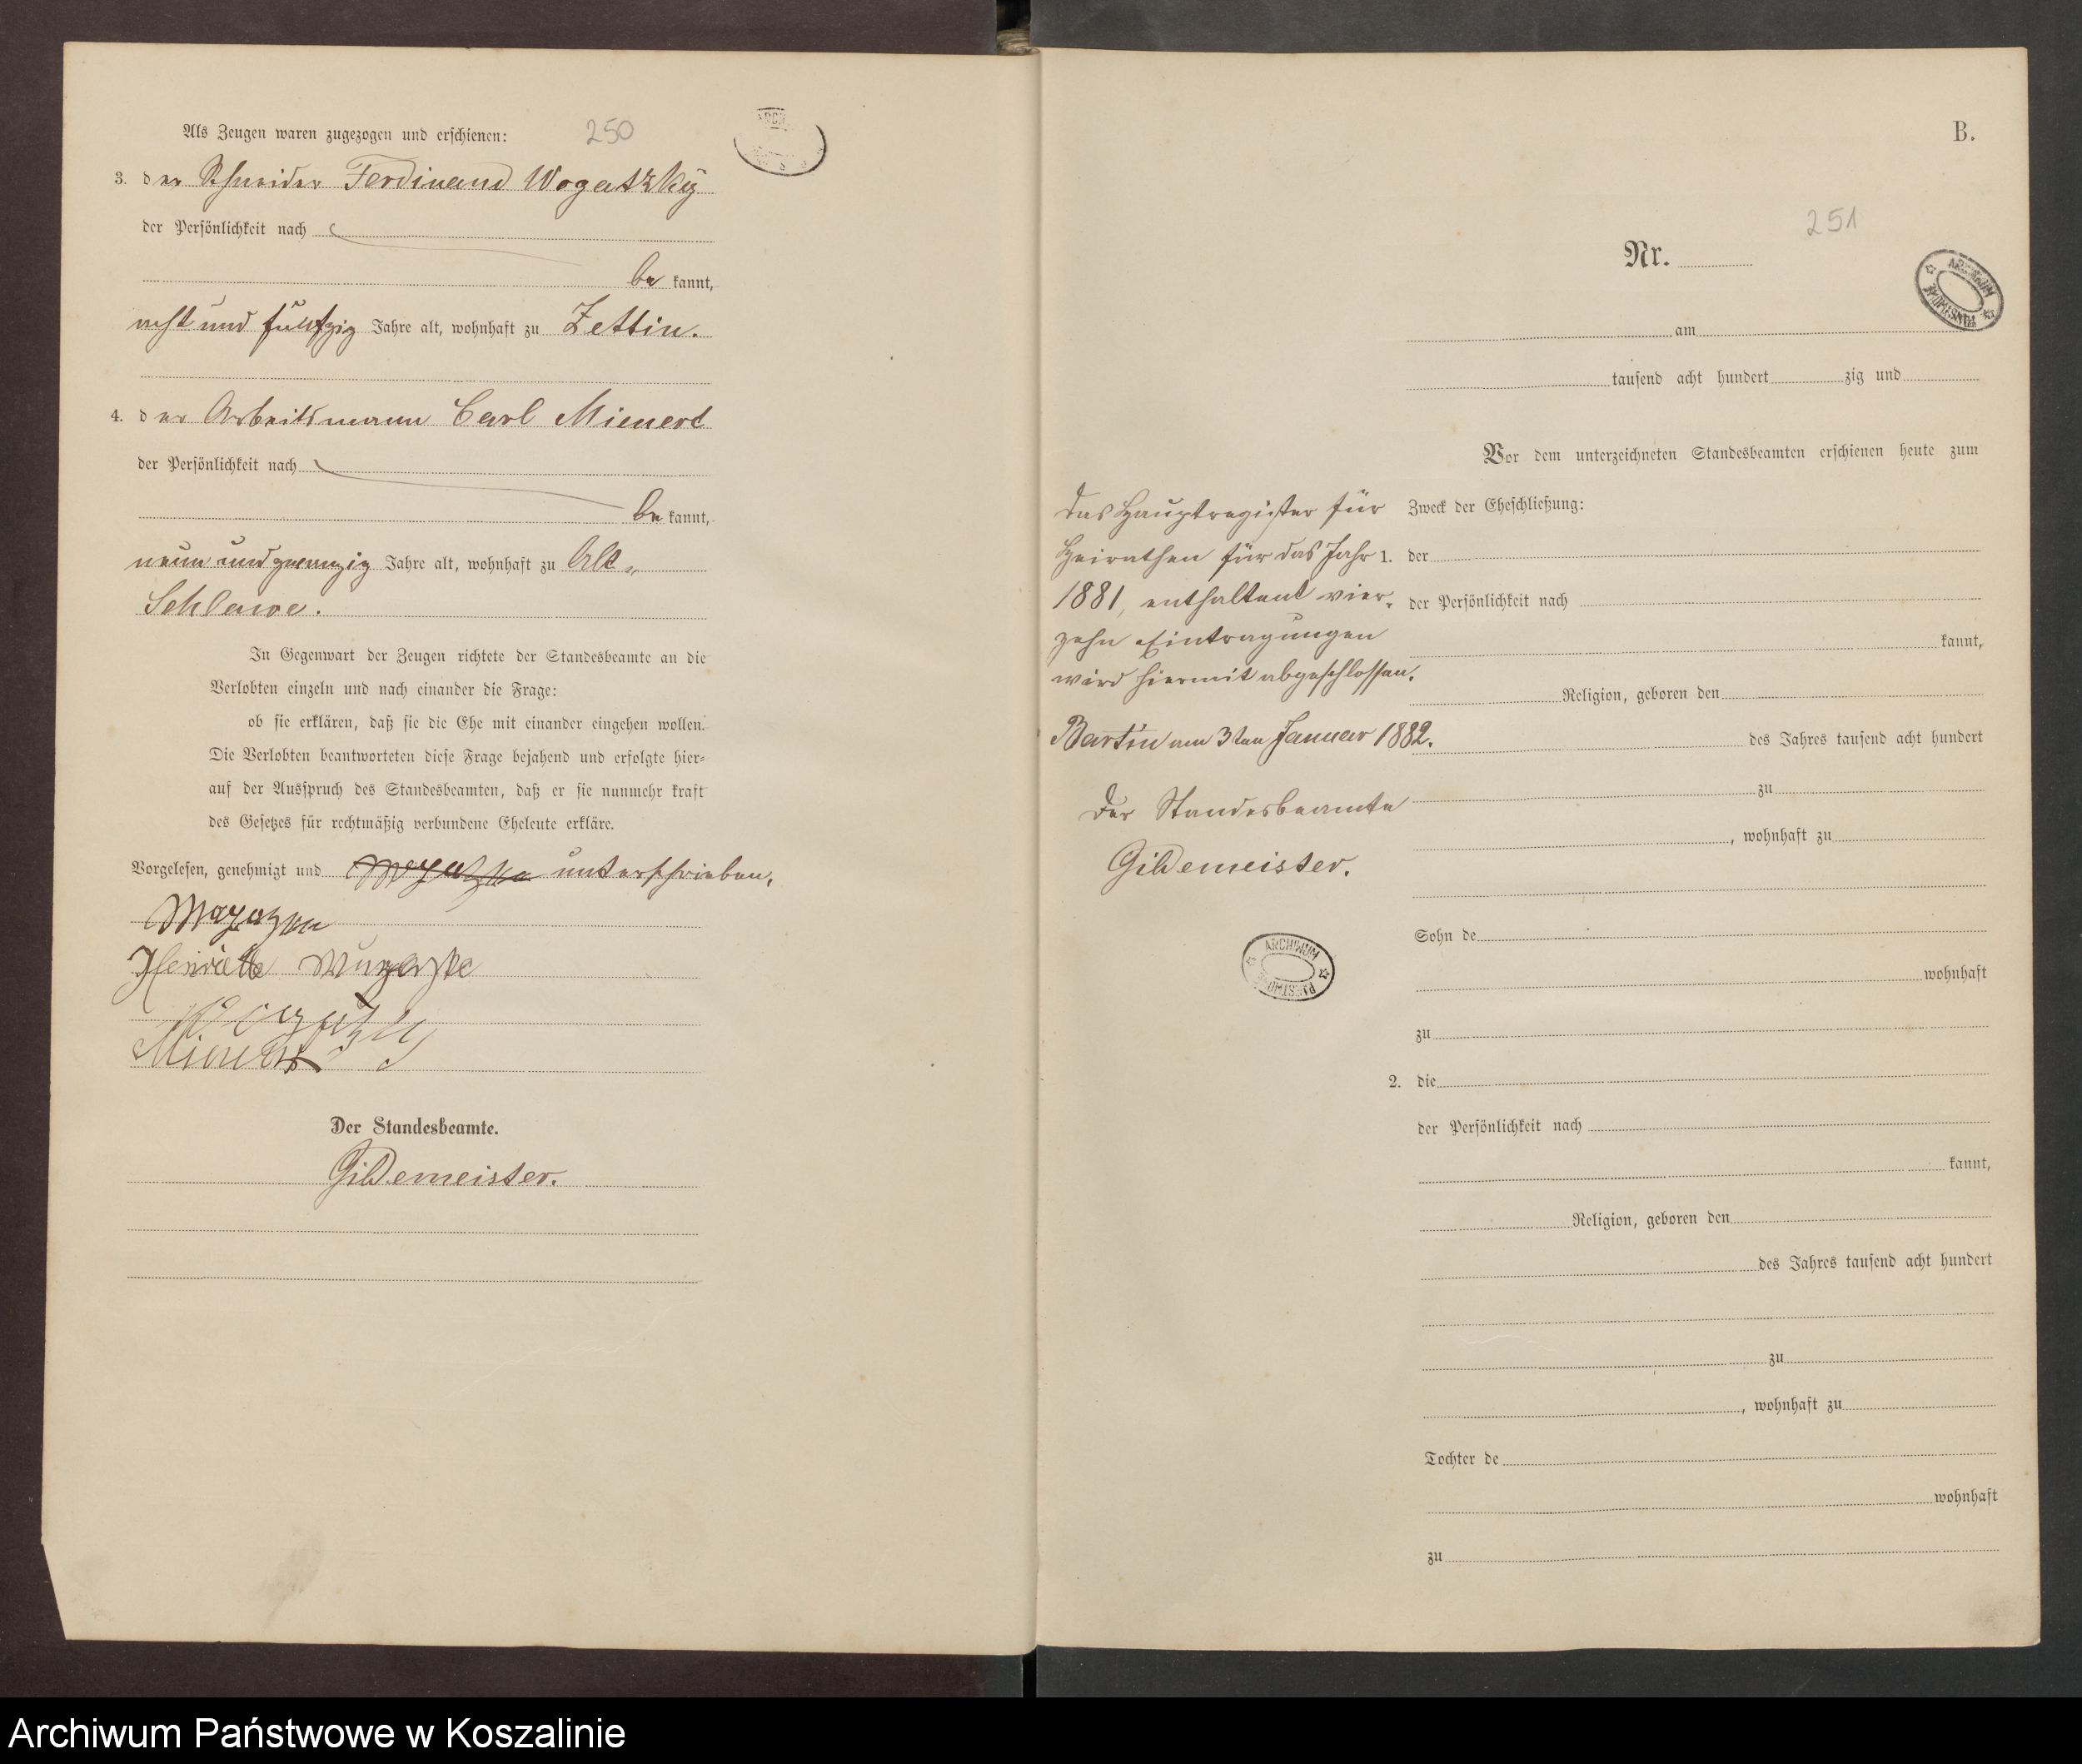 Als Zeugen waren zugezogen und erschienen:
250
3. der Schneider Ferdinand Wogatzky
der Persönlichkeit nach
bekannt,
acht und fünfzig Jahre alt, wohnhaft zu Zettin.
4. der Arbeitsmann Carl Mienert
der Persönlichkeit nach
bekannt,
neun und zwanzig Jahre alt, wohnhaft zu Alt-
Schlawe.
In Gegenwart der Zeugen richtete der Standesbeamte an die
Verlobten einzeln und nach einander die Frage:
ob sie erklären, daß sie die Ehe mit einander eingehen wollen.
Die Verlobten beantworteten diese Frage bejahend und erfolgte hier-
auf der Ausspruch des Standesbeamten, daß er sie nunmehr kraft
des Gesetzes für rechtmäßig verbundene Eheleute erkläre.
Vorgelesen, genehmigt und unterschrieben,
Henriette
Wogatzky
Mienert
Der Standesbeamte.
Gildemeister.
B.
251
Nr.
ARCHIWUM
am
tausend acht hundert zig und
Vor dem unterzeichneten Standesbeamten erschienen heute zum
Zweck der Eheschließung:
1. der
der Persönlichkeit nach
kannt,
Religion, geboren den
des Jahres tausend acht hundert
zu
, wohnhaft zu
Sohn de
wohnhaft
zu
2. die
der Persönlichkeit nach
kannt,
Religion, geboren den
des Jahres tausend acht hundert
zu
, wohnhaft zu
Tochter de
wohnhaft
zu
Das Hauptregister für
Heirathen für das Jahr
1881, enthaltend vier-
zehn Eintragungen
wird hiermit abgeschlossen.
Bartin am 3ten Januar 1882.
Der Standesbeamte
Gildemeister.
ARCHIWUM
Archiwum Państwowe w Koszalinie